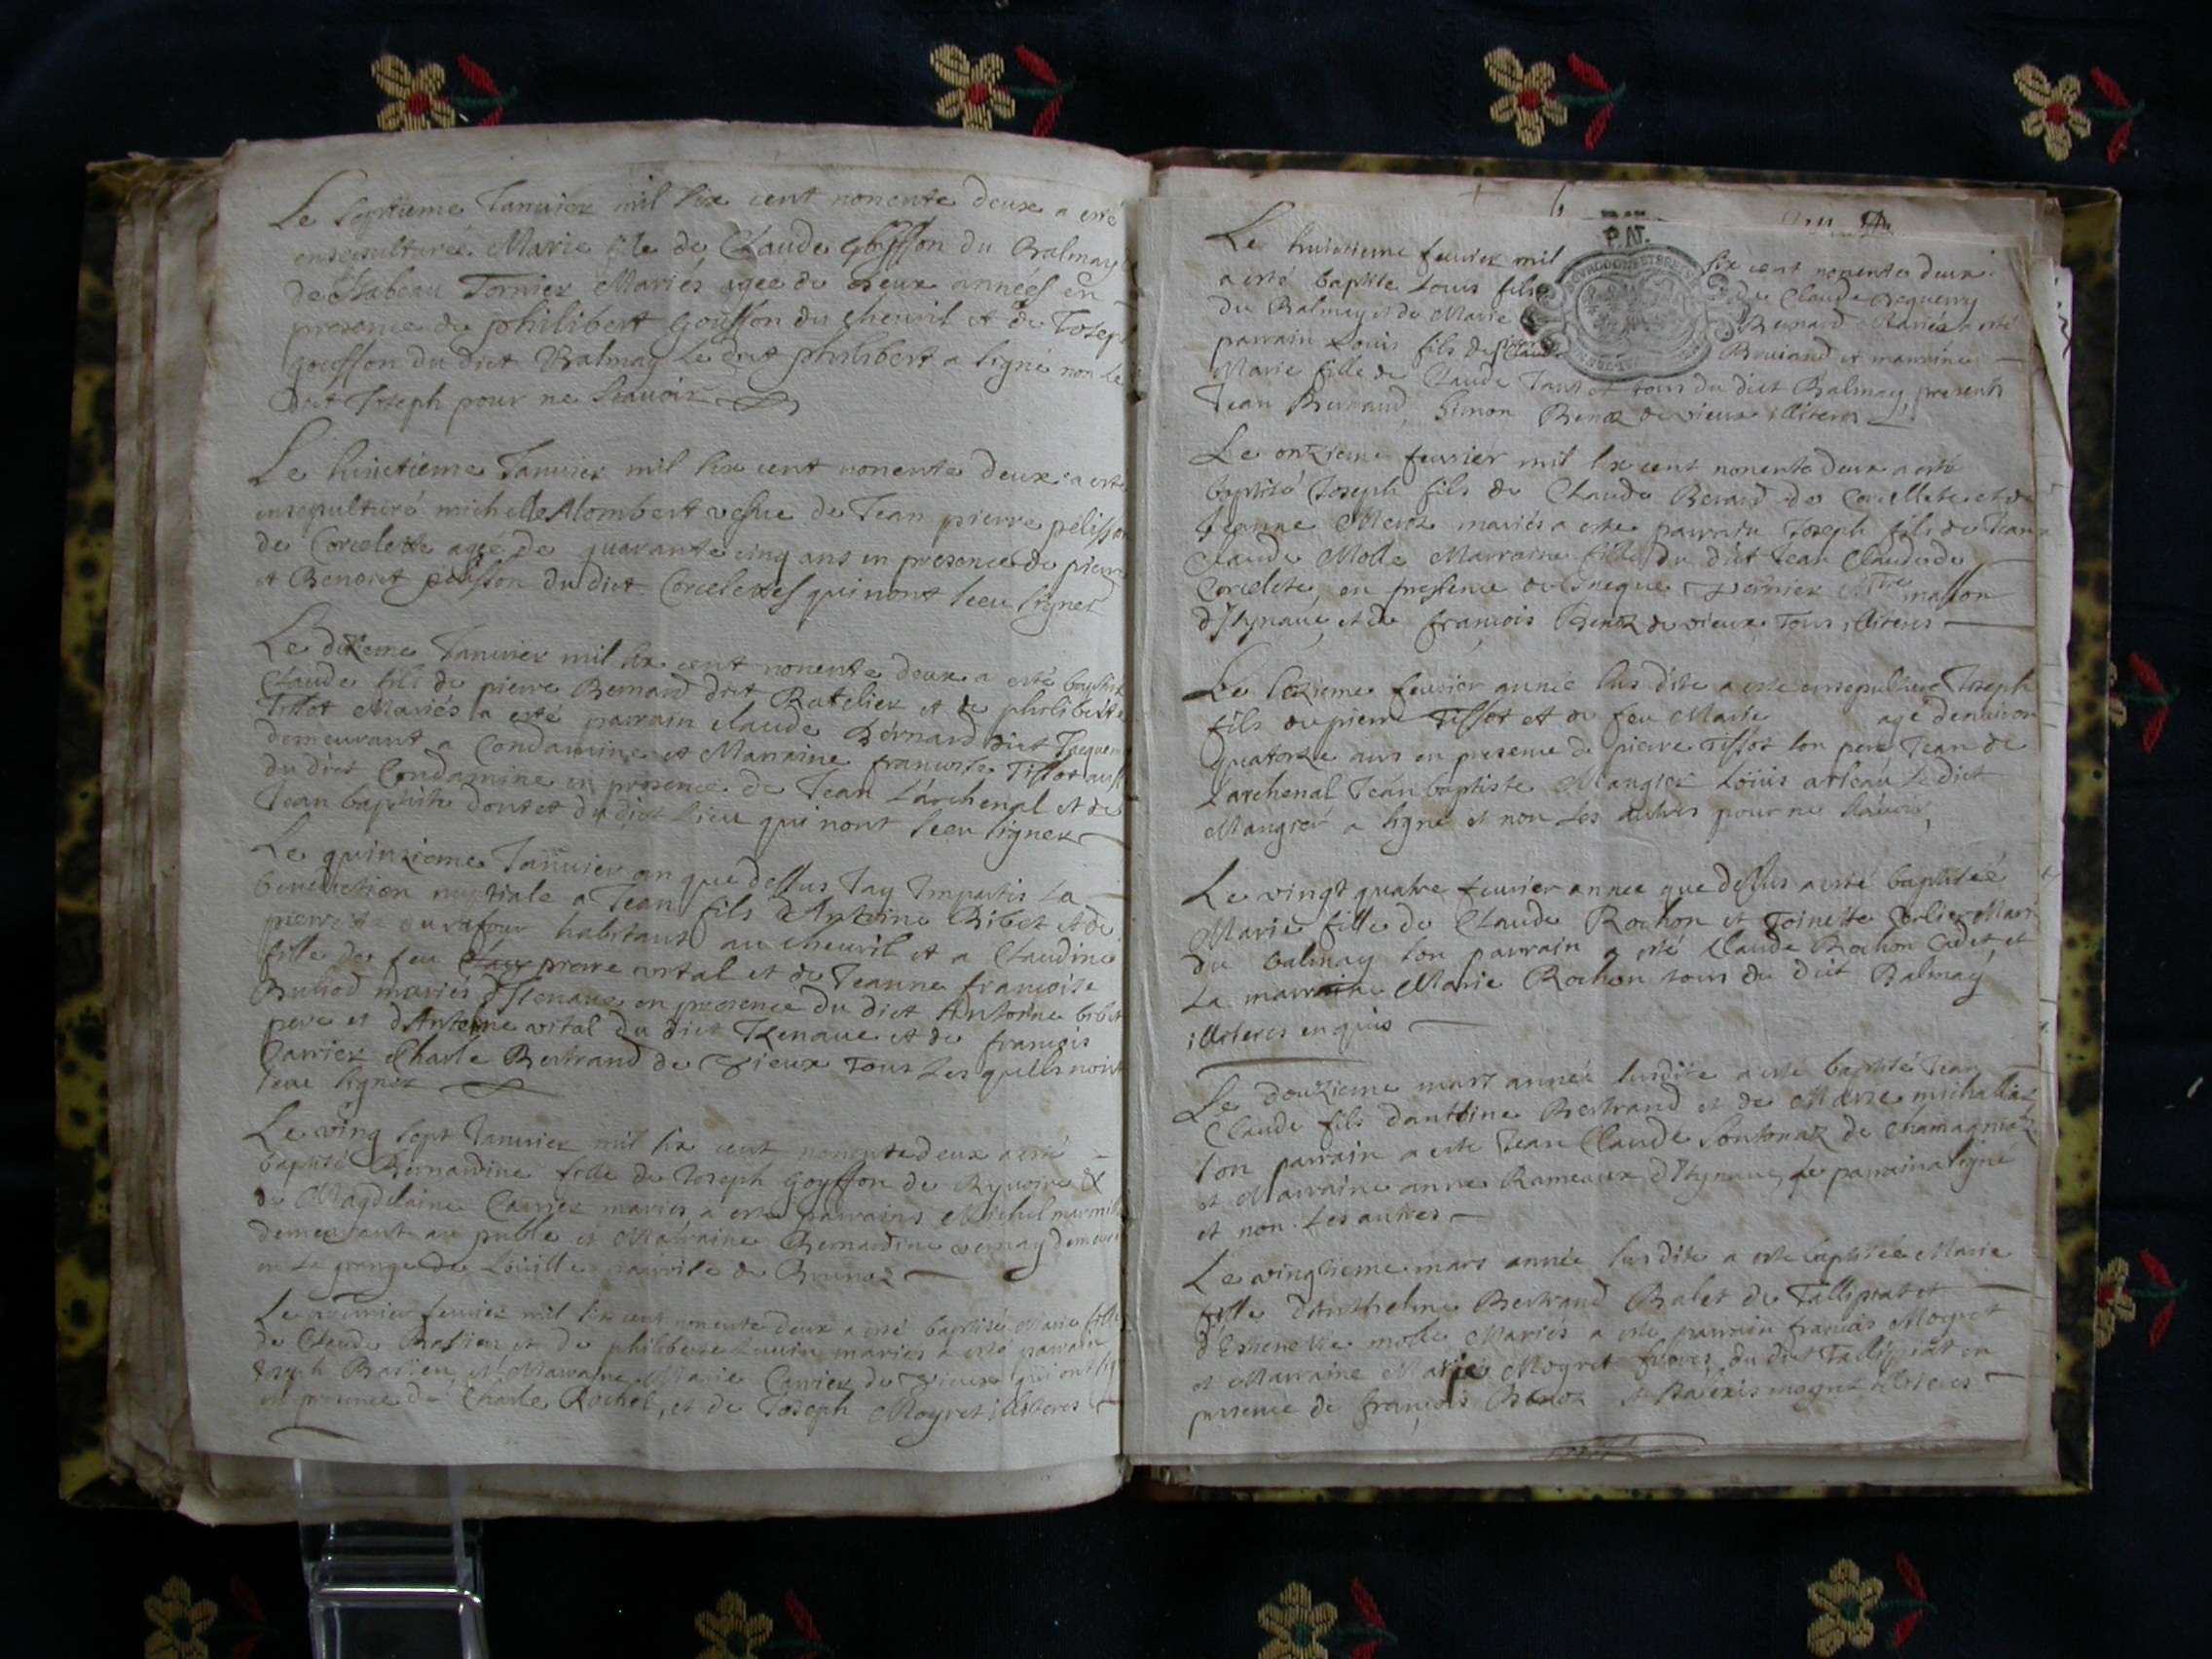 Le septieme Januier mil six cent nonente deux a esté
ensepulturée Marie fille de Claude goiffon du Balmay
de Isabeau Tornier Mariés agee de deux années en
presence de philibert gouffon du cheuril et de Joseph
gouffon du dict Balmay Le dict philibert a signé non Le
dict Joseph pour ne scauoir
Le huictieme Januier mil six cent nonente deux a esté
ensepulturé michelle Mombert vefue de Jean pierre pelisson
de Corcelette agée de quarante cinq ans en presence de pierre
et Benoist pelisson du dict Corcelettes qui nont sceu signer
Le dixieme Januier mil six cent nonente deux a esté baptisé
Claude fils de pierre Bernard dict Ratelier et de philiberte
Tissot Mariés a esté parrain claude Bernard dict
demeurant a Condamine et Marraine francoise Tissot aussi
du dict Condamine en presence de Jean Larchenal et de
Jean baptiste doutet du dict lieu qui nont sceu signer
Le quinzieme Januier an que dessus Jay Imparti La
benediction nuptiale a Jean fils d'Antoine Bibet et de
pierrette dufour habitants au cheuril et a Claudine
fille de feu pierre vital et de Jeanne francoise
Buliod mariés d'Isenaue en presence du dict Antoine bibet
pere et d'Antoine vital du dict Izenaue et de francois
Carrier Charle Bertrand de vieux Tous Lesquells nont
sceu signer
Le ving sept Januier mil six cent nonente deux a esté
baptisé Bernardine fille de Joseph goyffon de Ryuoire &
de Magdelaine Carrier mariés, a esté parrains Michel
demeurant au puble et Marraine Bernardine vernay
en La grange de Loüille parroisse de Brenoz
Le premier feurier mil six cent nonente deux a esté baptisé Marie fille
de Claude Basien et de philiberte mariés a esté parrain
Joseph Basien et Marraine Marie Carrier de vieux qui ont
en presence de Charle Rochet, et de Joseph Moyret illiteres
P.NT.
Le huictieme feurier mil six cent nonente deux
a esté baptisé Louis fils de Claude Seguerry
du Balmay et de Marie Bernard Mariés a esté
parrain Louis fils de Claude Bruiand et marraine
Marie fille de Claude tous du dict Balmay, presents
Jean Bernard, Simon Benoz de vieux illiteres
Le onzieme feurier mil six cent nonente deux a esté
baptisé Joseph fils de Claude Berard de Corcellete et de
Jeanne Meroz mariés a este parrain Joseph fils de Jean
Claude Molle Marraine fille du dict Jean Claude de
Corcelete, en presence de vernier Mtre masson
d'Izynaue, et de francois Benoz de vieux Tous illiteres
Le sezieme feurier année sus dite a este ensepulturé Joseph
fils de pierre Tissot et de feu Marie agé denuiron
quatorze ans en presence de pierre Tissot son pere Jean de
Larchenal Jean baptiste Mangier Loüis le dict
Mangier a signé et non Les autres pour ne scauoir,
Le vingt quatre feurier annee que dessus a esté baptisée
Marie fille de Claude Rochon et Toinette Mari
du balmay son parrain a esté Claude Rochon Cadet et
La marraine Marie Rochon tous du dict Balmay
illiteres enquis
Le douzieme mars année susdite a esté baptisé Jean
Claude fils dantoine Bertrand et de Marie michallaz
son parrain a este Jean Claude Sontonaz de Chamagniaz
et Marraine anne Rameaux d'Izynaue, Le parrain a signé
et non Les autres
Le vingtieme mars année susdite a este baptisée Marie
fille d'Anthelme Bertrand Balet de Tallipiat et
d'Estienette molle Mariés a este parrain francois Moyret
et Marraine Marie Moyret du dict Tallipiat en
presence de francois Benoz moyret illiteres